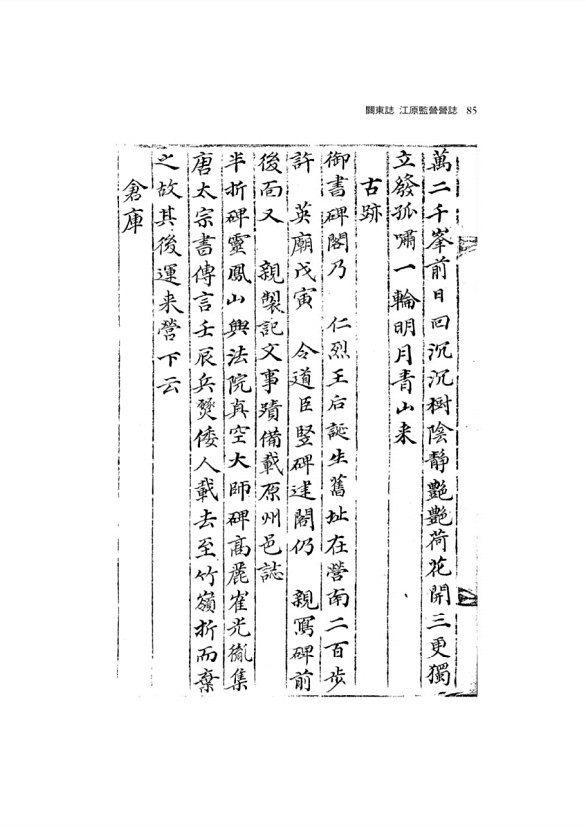 關東誌 江原監營營誌 85
萬二千峯前日回沉沉樹陰靜艶艶荷花開三更獨
立發孤嘯一輪明月靑山来
古跡
御書碑閣乃 仁烈王后誕生舊址在營南二百步
許 英廟戊寅 令道臣竪碑建閣仍 親寫碑前
後面又 親製記文事蹟備載原州邑誌
半折碑靈鳳山興法院真空大師碑高麗崔光胤集
唐太宗書傳言壬辰兵燹倭人載去至竹嶺折而棄
之故其後運来營下云
倉庫